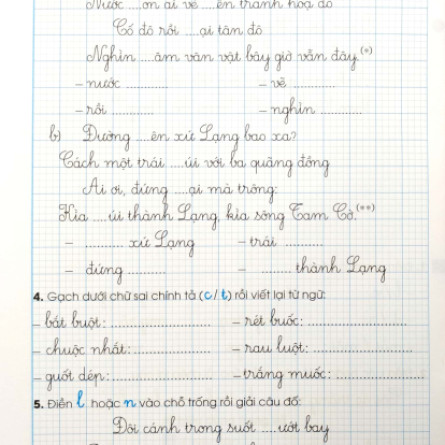 Nước ....on ai vẽ ....ên tranh hoạ đồ
Cố đô rồi ....ại tân đô
Nghìn ....ăm văn vật bây giờ vẫn đây.(*)
– nước ............ – vẽ ............
– rồi ............ – nghìn ............
b) Đường ....ên xứ Lạng bao xa?
Cách một trái ....úi với ba quãng đồng
Ai ơi, đứng ....ại mà trông:
Kìa ....úi thành Lạng, kìa sông Tam Cờ.(**)
– ............ xứ Lạng – trái ............
– đứng ............ – ............ thành Lạng
4. Gạch dưới chữ sai chính tả (c / t) rồi viết lại từ ngữ:
– bát buột: ............ – rét buốc: ............
– chuộc nhắt: ............ – rau luột: ............
– guốt dép: ............ – trắng muốc: ............
5. Điền l hoặc n vào chỗ trống rồi giải câu đố:
Đôi cánh trong suốt ....ướt bay